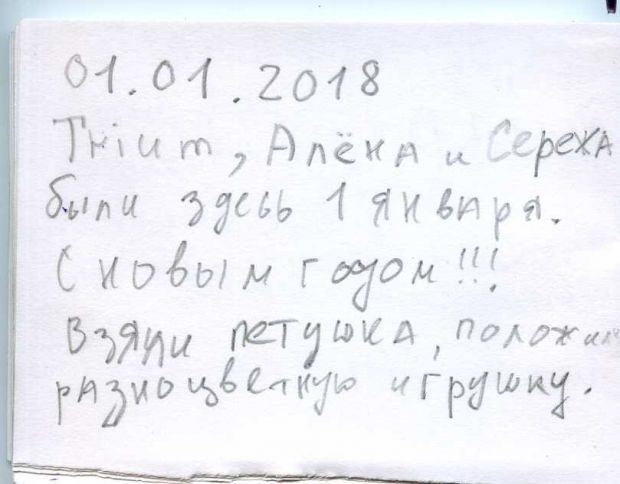 01.01.2018
Thium, Алёна и Сереха
были здесь 1 января.
С новым годом!!!
Взяли петушка, положили
разноцветную игрушку.